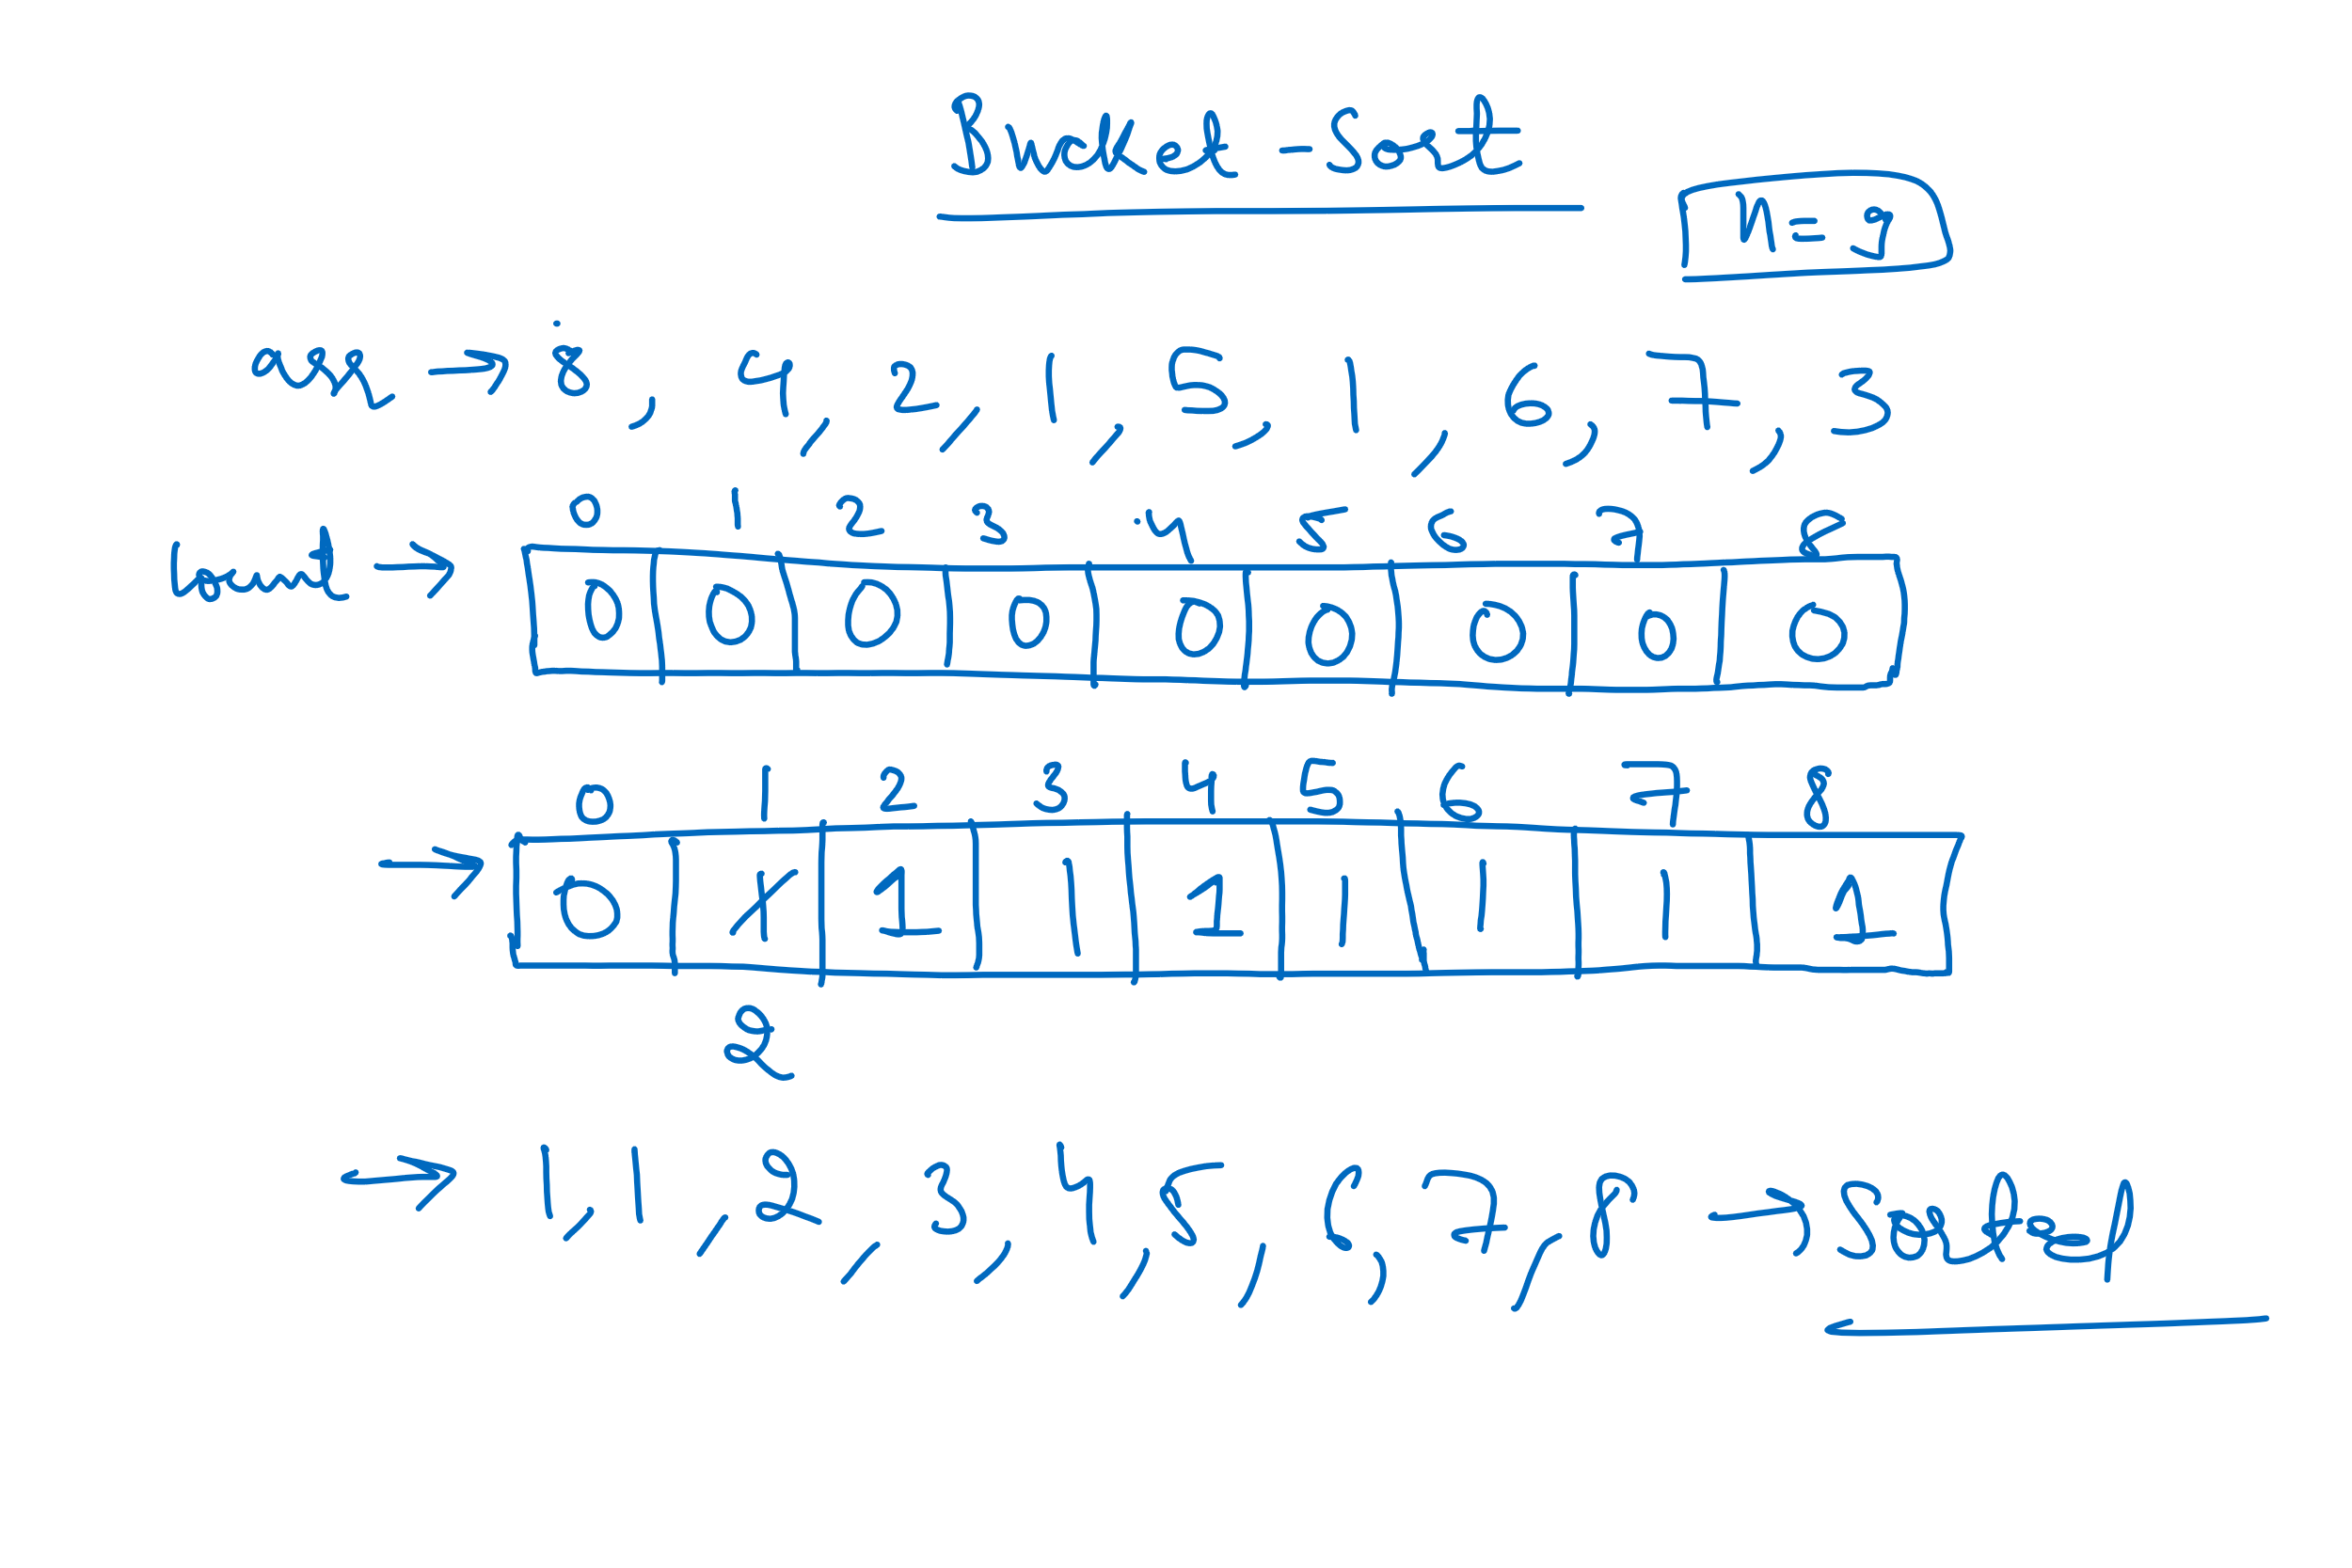 Bucket - Sort
n = 9
arr → 8, 4, 2, 1, 5, 1, 6, 7, 3
0 1 2 3 4 5 6 7 8
→ 0 0 0 0 0 0 0 0 0
0 1 2 3 4 5 6 7 8
→ 0 1 1 1 1 1 1 1 1
2
→ 1, 1, 2, 3, 4, 5, 6, 7, 8 → Sorted